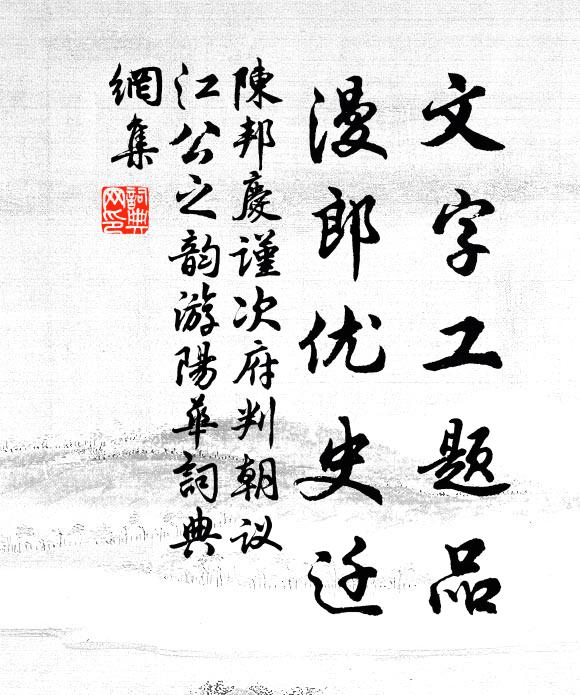 文字工题品
漫郎优史迁
陳邦慶谨次府判朝议
江公之韵游陽華詞典
網集
詞典网印